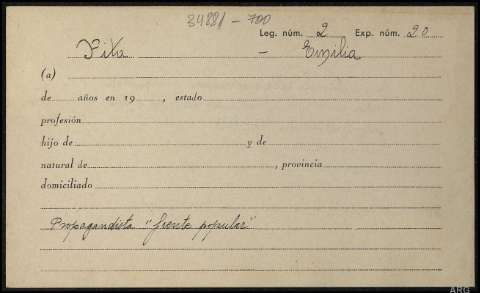 34881 - 700
Leg. núm. 2 Exp. núm. 20
Pita - Emilia
(a)
de años en 19 , estado
profesión
hijo de y de
natural de , provincia
domiciliado
Propagandista "frente popular"
ARG